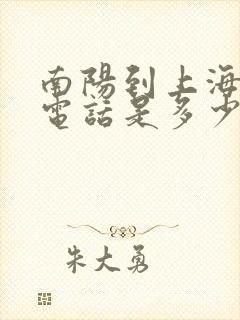 南陽到上海
電話是多少
朱大勇